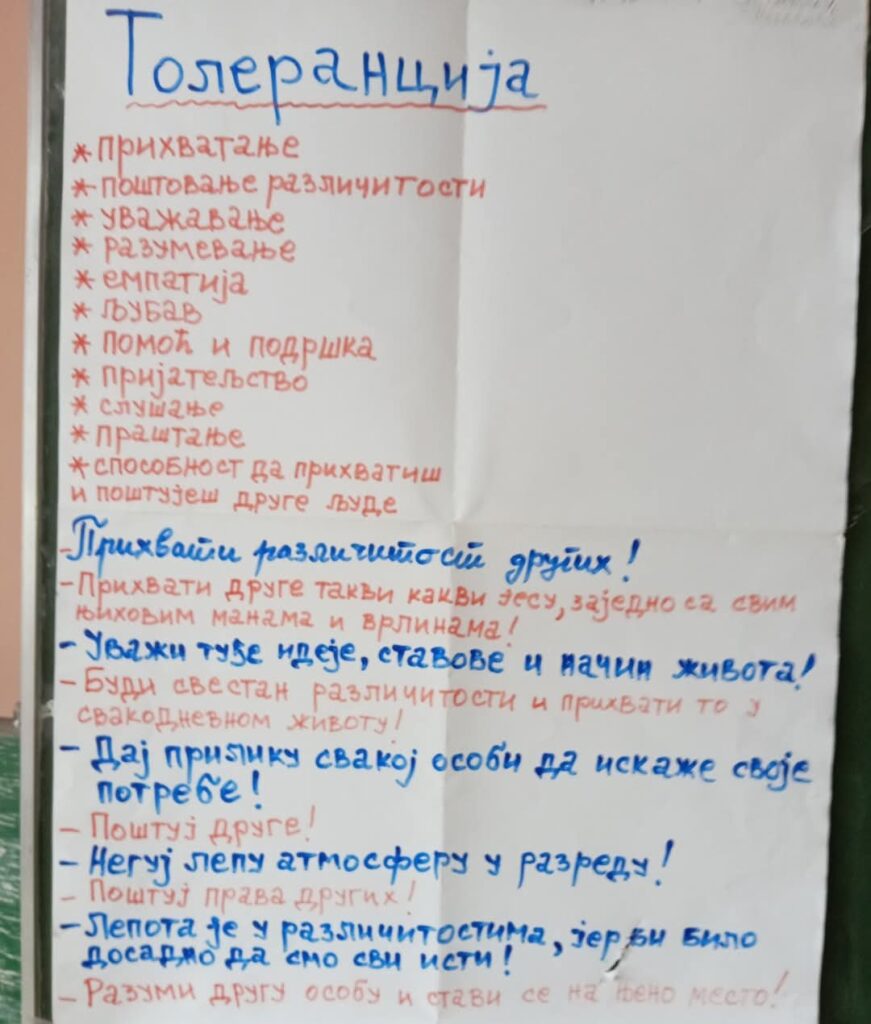 Толеранција
* прихватање
* поштовање различитости
* уважавање
* разумевање
* емпатија
* љубав
* помоћ и подршка
* пријатељство
* слушање
* праштање
* способност да прихватиш
и поштујеш друге људе
- Прихвати различитост других!
- Прихвати друге такви какви јесу, заједно са свим
њиховим манама и врлинама!
- Уважи туђе идеје, ставове и начин живота!
- Буди свестан различитости и прихвати то у
свакодневном животу!
- Дај прилику свакој особи да искаже своје
потребе!
- Поштуј друге!
- Негуј лепу атмосферу у разреду!
- Поштуј права других!
- Лепота је у различитостима, јер би било
досадно да смо сви исти!
- Разуми другу особу и стави се на њено место!